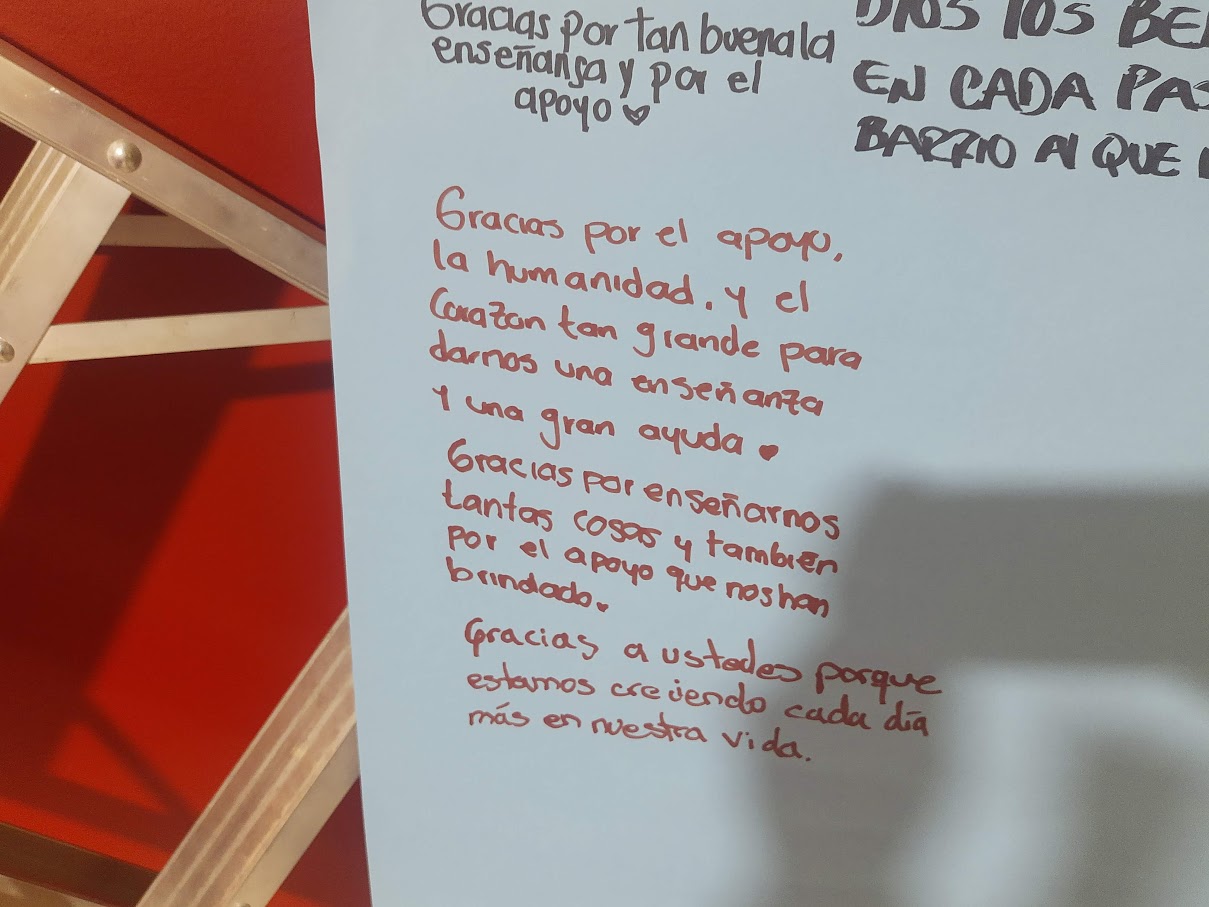 Gracias por tan buena la
enseñansa y por el
apoyo
DIOS LOS
EN CADA
BARRIO Al QUE
Gracias por el apoyo,
la humanidad. y el
Corazon tan grande para
darnos una enseñanza
y una gran ayuda
Gracias por enseñarnos
tantas cosas y también
por el apoyo que nos han
brindado.
Gracias a ustedes porque
estamos creciendo cada día
más en nuestra vida.